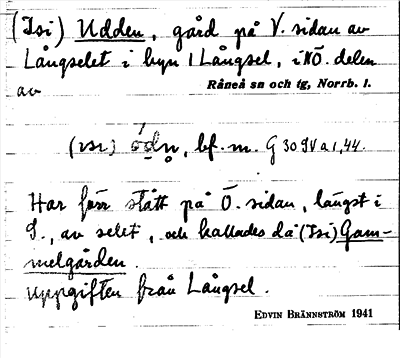 (Isi) Udden, gård på V. sidan av
Långselet i byn 1 Långsel, i NÖ. delen
av Råneå sn och tg, Norrb. l.
(ɪsɪ) bf. m. G 30 9V a 1, 44.
Har förr stått på Ö. sidan, längst i
S., av selet, och kallades då (Isi) Gam-
melgården.
Uppgiften från Långsel.
EDVIN BRÄNNSTRÖM 1941